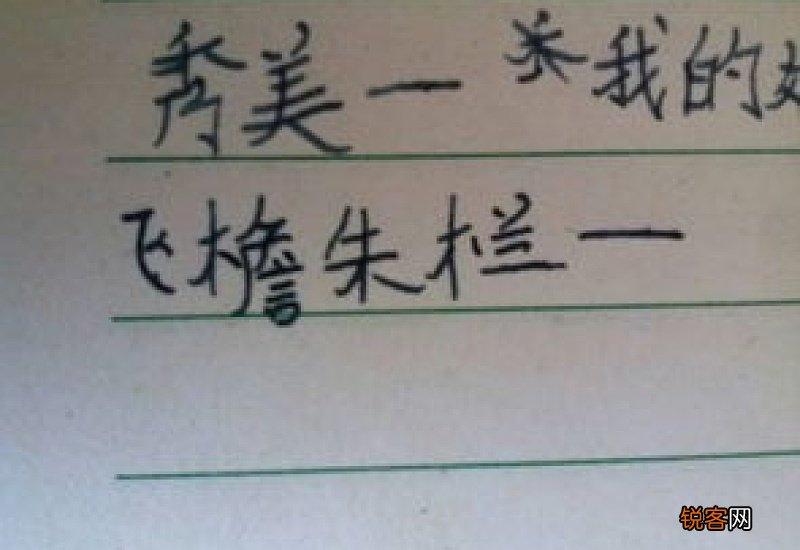 秀美一 米我的
飞檐朱栏一
锐客网